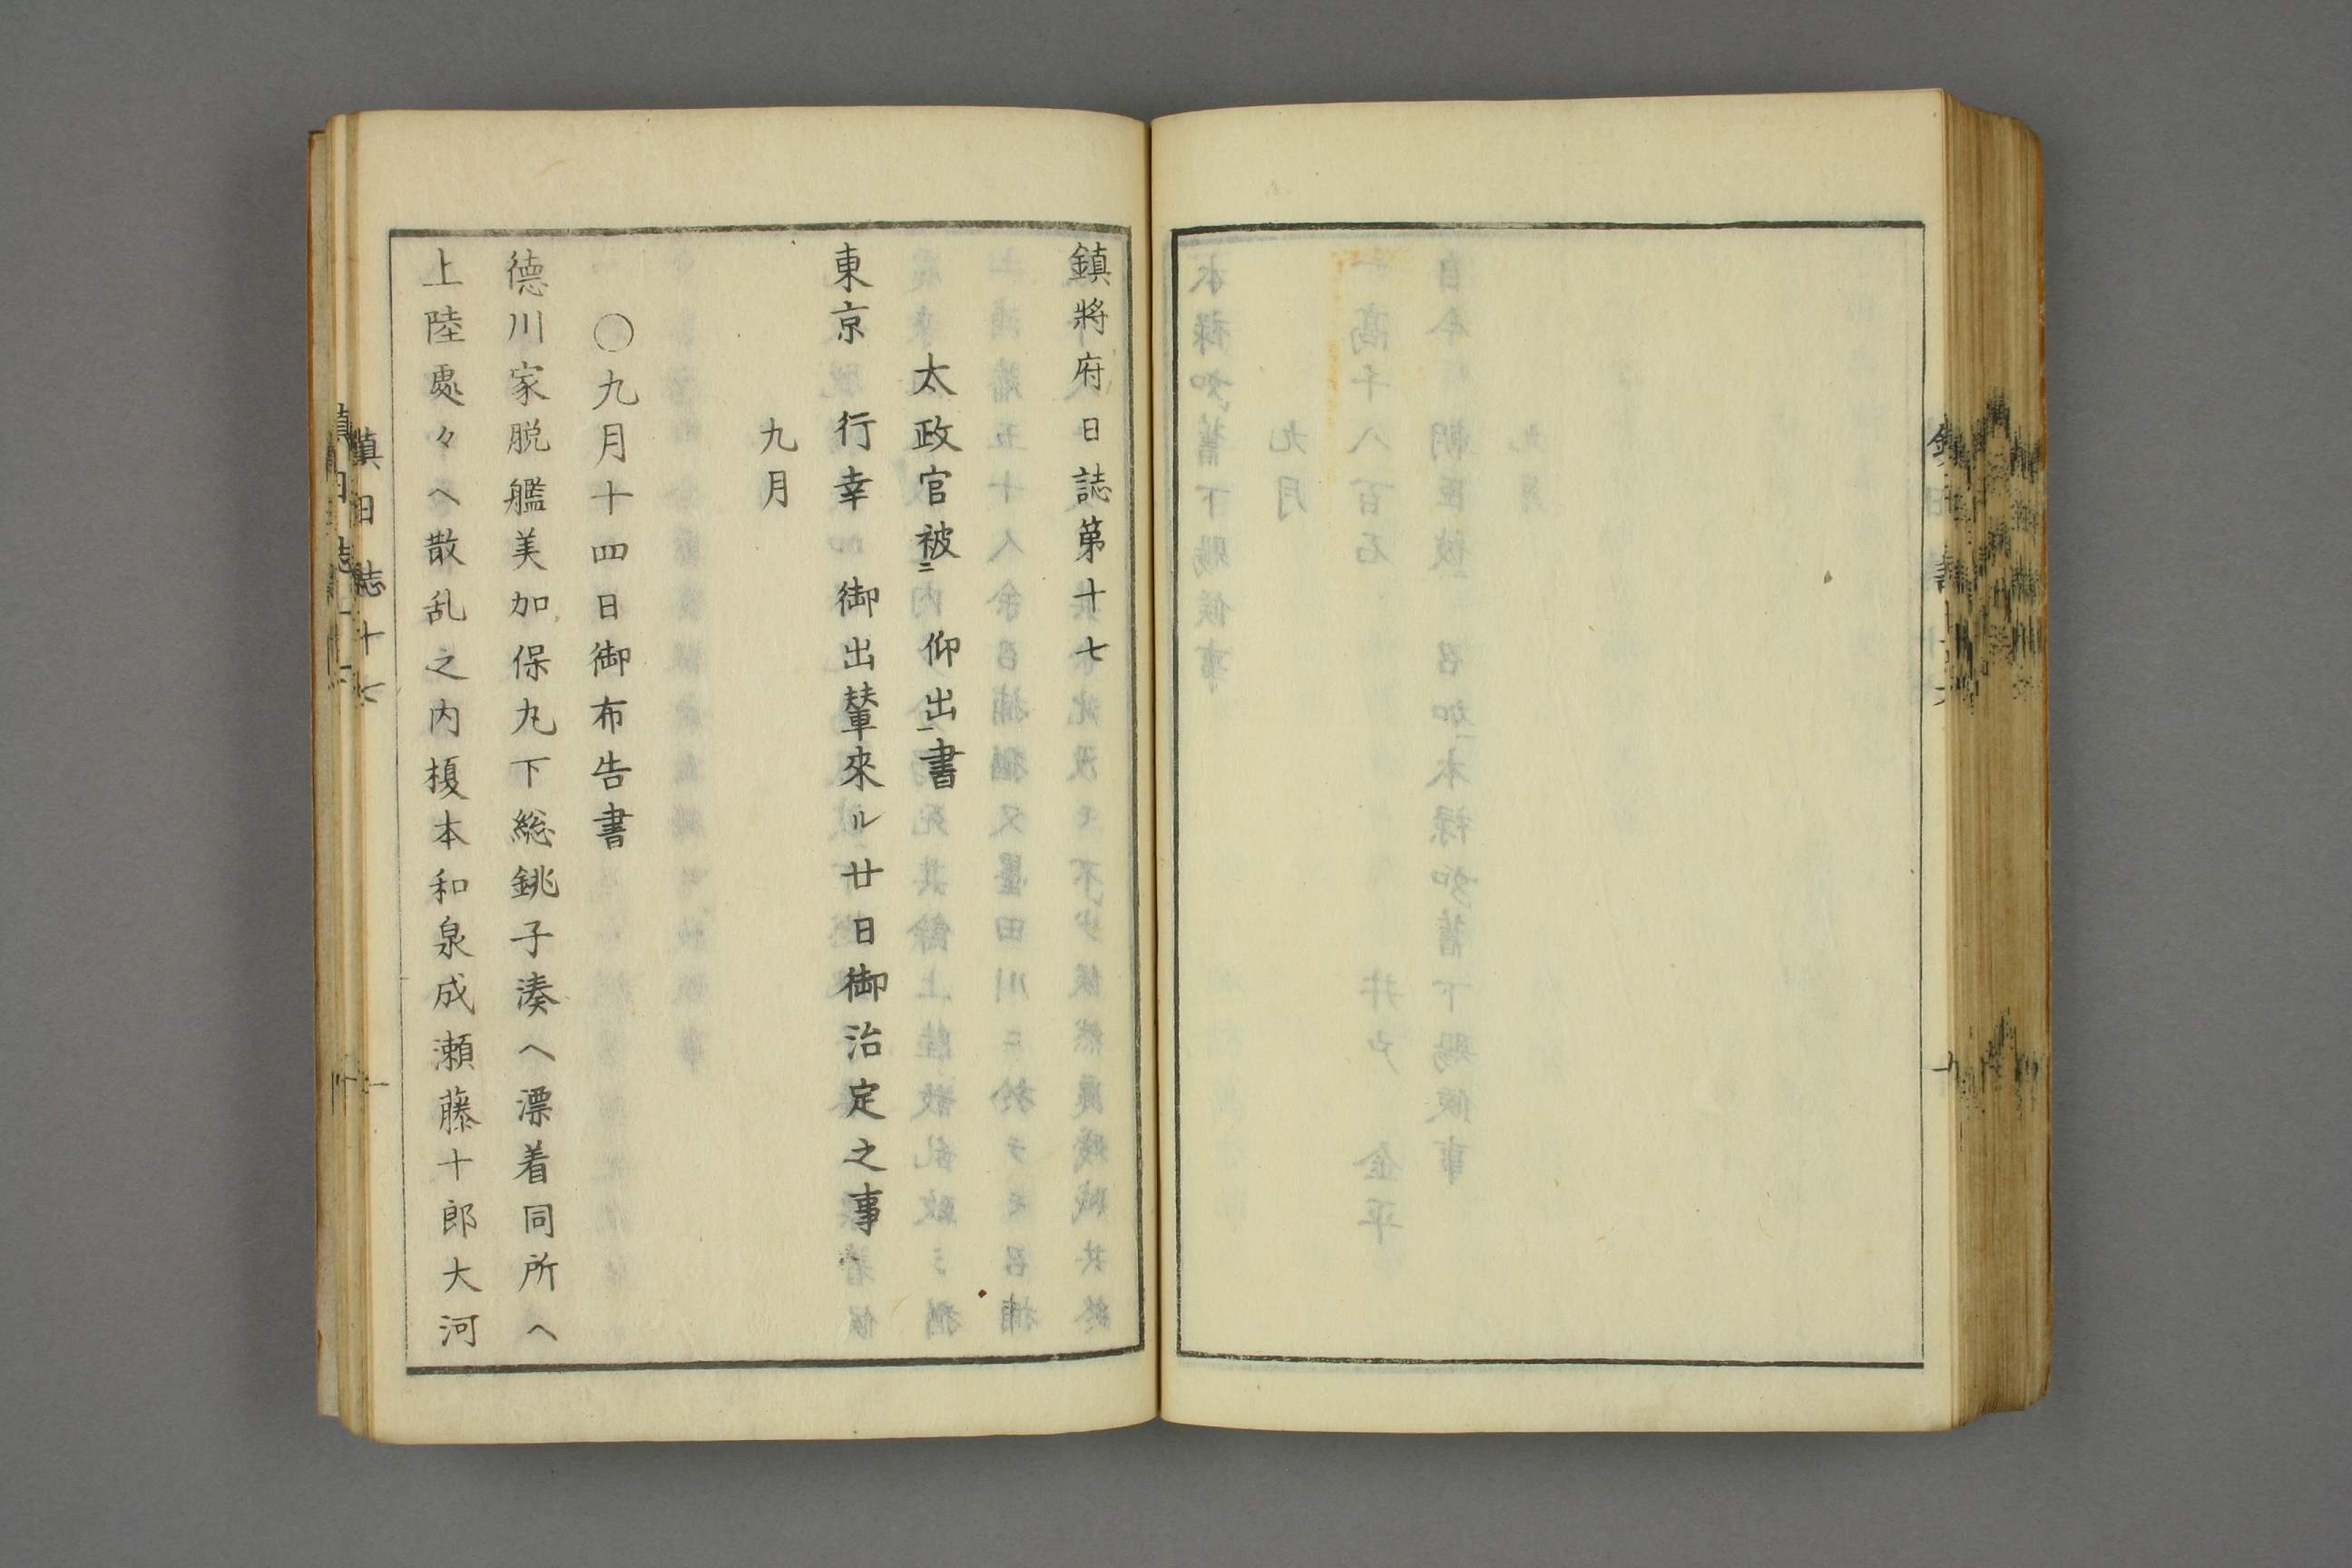 鎮將府日誌第十七
太政官被ニ 仰出ニ書
東京 行幸 御出輦來ル廿日御治定之事
九月
〇九月十四日御布告書
德川家脱艦美加保丸下総銚子湊へ漂着同所へ
上陸處々へ散乱之内榎本和泉成瀬藤十郎大河
鎮日誌十七
一